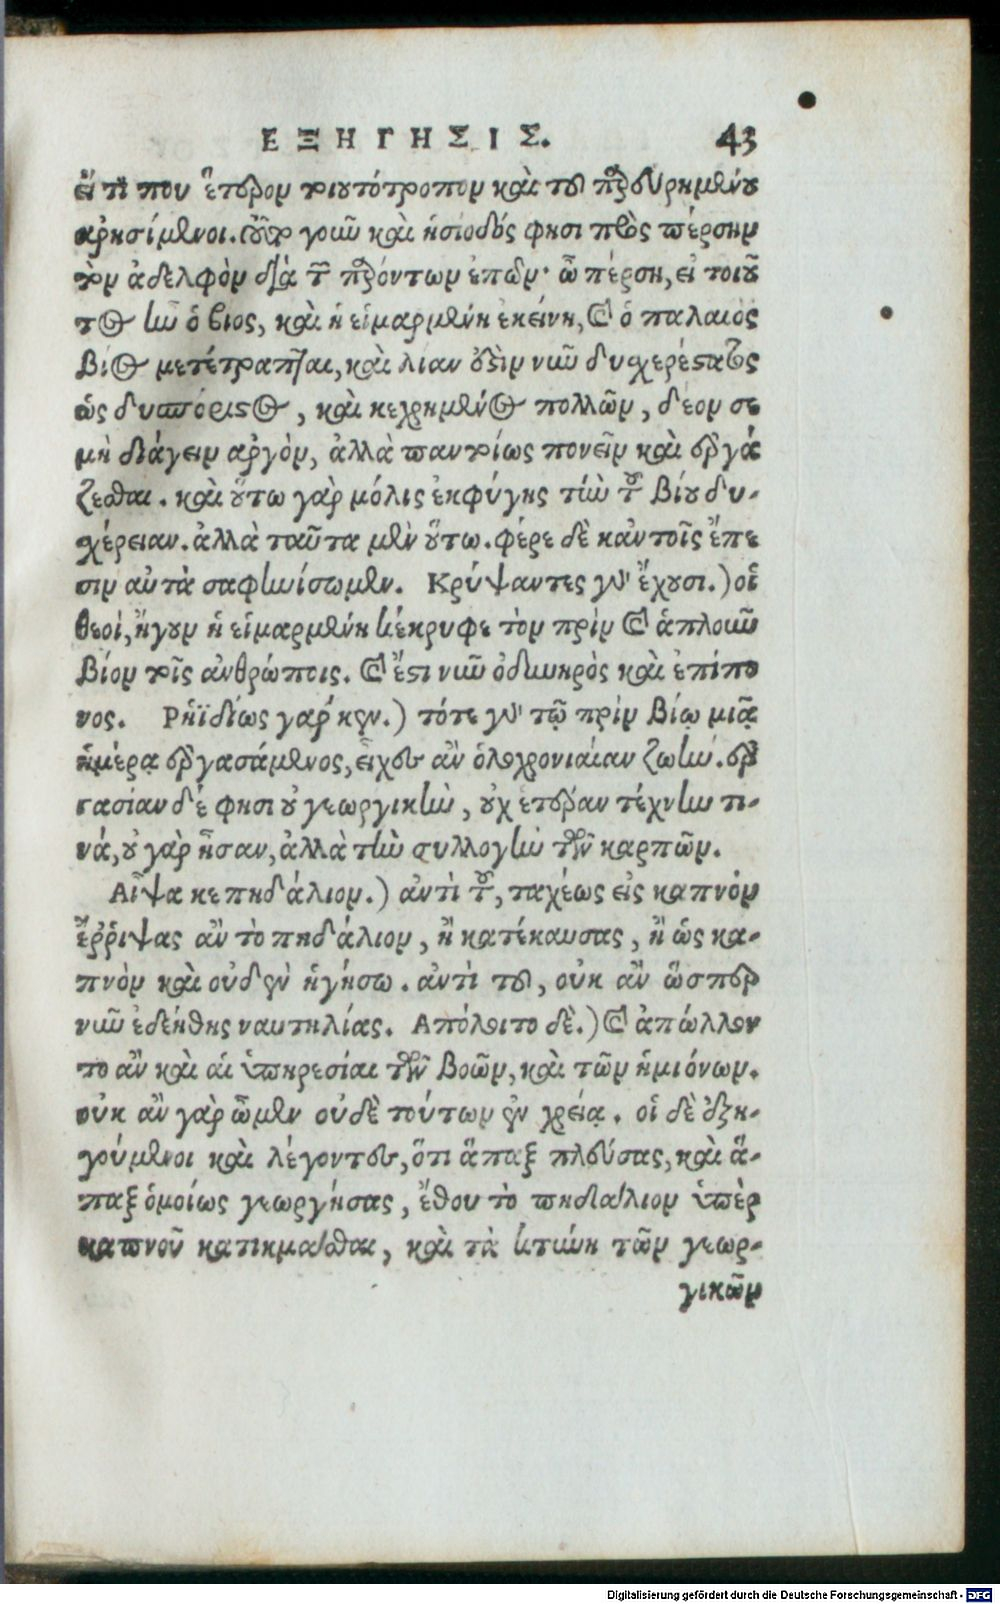 ΕΞΗΓΗΣΙΣ. 43
εἴ τί που ἕτερον τοιουτότροπον καὶ τοῦ παρευρημένου
χρησίμενοι. οὕτω γοῦν καὶ ἡσίοδός φησι πρὸς πέρσην
τὸν ἀδελφὸν διὰ τῶν παρόντων ἐπῶν· ὦ πέρση, εἰ τοιοῦ
τος ἦν ὁ βιος, καὶ ἡ εἱμαρμένη ἐκείνη, καὶ ὁ παλαιὸς
βίος μετέτραπται, καὶ λίαν ἐστὶν νῦν δυχερέστατος
ὡς δυσπόριστος, καὶ κεχρημένος πολλῶν, δέον σε
μὴ διάγειν ἀργὸν, ἀλλὰ παντοίως πονεῖν καὶ ἐργά
ζεσθαι. καὶ οὕτω γὰρ μόλις ἐκφύγης τὴν τοῦ βίου δυ-
χέρειαν. ἀλλὰ ταῦτα μὲν οὕτω. φέρε δὲ κἀν τοῖς ἔπε
σιν αὐτὰ σαφηνίσωμεν. Κρύψαντες γὰρ ἔχουσι.) οἱ
θεοὶ, ἤγουν ἡ εἱμαρμένη ἔκρυφε τὸν πρὶν καὶ ἁπλοῦν
βίον τοῖς ἀνθρώποις. καὶ ἔστι νῦν ὀδυνηρὸς καὶ ἐπίπο
νος. Ρηϊδίως γάρ κεν.) τότε γὰρ τῷ πρὶν βίῳ μιᾷ
ἡμέρᾳ ἐργασάμενος, εἶχες ἂν ὁλοχρονιαίαν ζωήν. ἐρ
γασίαν δέ φησι οὐ γεωργικὴν, οὐχ ἑτέραν τέχνην τι-
νά, οὐ γὰρ ἦσαν, ἀλλὰ τὴν συλλογὴν τῶν καρπῶν.
Αἶψα κε πηδάλιον.) ἀντὶ τοῦ, ταχέως εἰς καπνὸν
ἔῤῥιψας ἂν τὸ πηδάλιον, ἢ κατέκαυσας, ἢ ὡς κα-
πνὸν καὶ οὐδὲν ἡγήσω. ἀντὶ τοῦ, οὐκ ἂν ὥσπερ
νῦν ἐδεήθης ναυτηλίας. Απόλοιτο δὲ.) καὶ ἀπώλλον
το ἂν καὶ αἱ ὑπηρεσίαι τῶν βοῶν, καὶ τῶν ἡμιόνων.
οὐκ ἂν γὰρ ὦμεν οὐδὲ τούτων ἐν χρείᾳ. οἱ δὲ ἐξη-
γούμενοι καὶ λέγοντες, ὅτι ἅπαξ πλεύσας, καὶ ἅ-
παξ ὁμοίως γεωργήσας, ἔθου τὸ πηδάλιον ὑπὲρ
καπνοῦ κατικμᾶσθαι, καὶ τὰ κτήνη τῶν γεωρ-
γικῶν
Digitalisierung gefördert durch die Deutsche Forschungsgemeinschaft - DFG